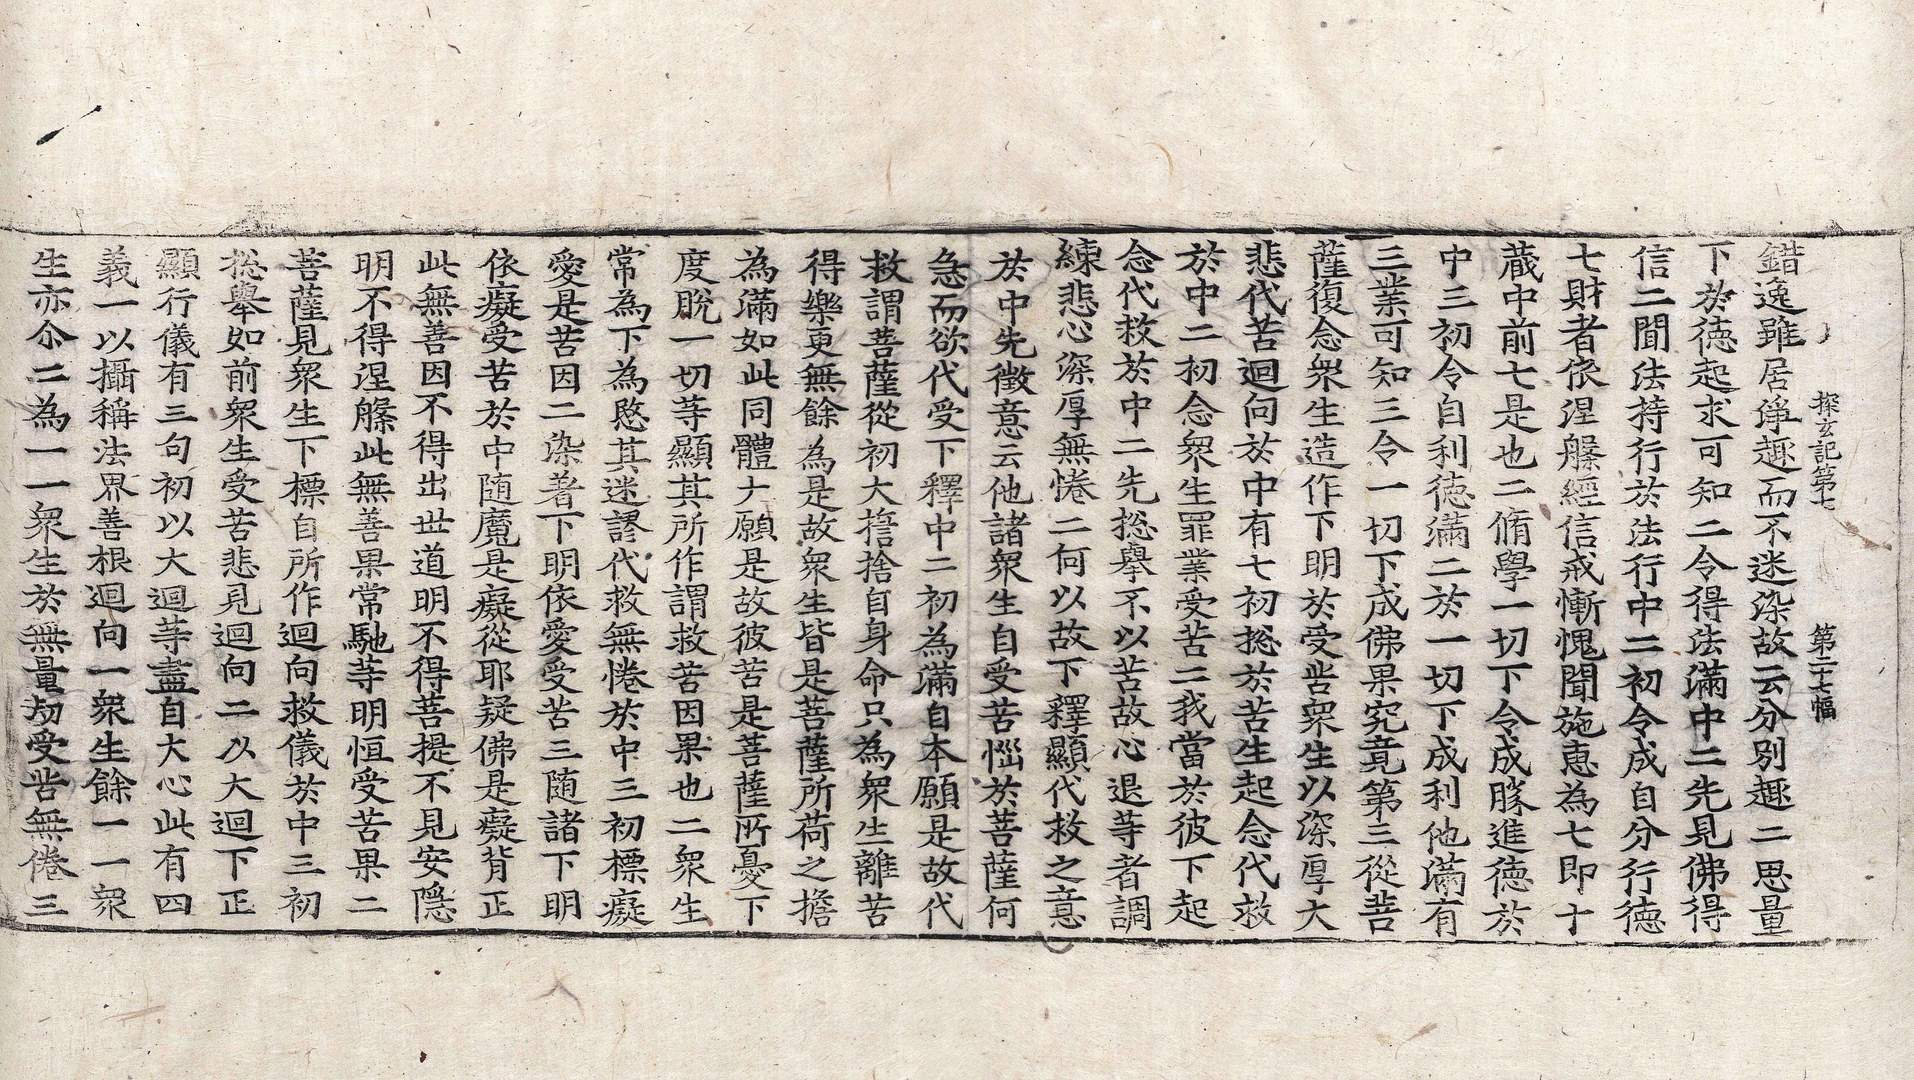 探玄記第七 第二十七幅
錯逸雖居淨趣而不迷染故云分別趣二思量
下於徳起求可知二令得法滿中二先見佛得
信二聞法持行於法行中二初令成自分行徳
七財者依涅槃經信戒慚愧聞施恵為七即十
蔵中前七是也二脩學一切下令成勝進徳於
中三初令自利徳滿二於一切下成利他滿有
三業可知三令一切下成佛果究竟第三從菩
薩復念衆生造作下明於受苦衆生以深厚大
悲代苦迴向於中有七初捴於苦生起念代救
於中二初念衆生罪業受苦二我當於彼下起
念代救於中二先捴舉不以苦故心退等者調
練悲心深厚無惓二何以故下釋顯代救之意
於中先徴意云他諸衆生自受苦惱於菩薩何
急而欲代受下釋中二初為滿自本願是故代
救謂菩薩從初大捨自身命只為衆生離苦
得樂更無餘為是故衆生皆是菩薩所荷之擔
為滿如此同體大願是故彼苦是菩薩所憂下
度脫一切等顯其所作謂救苦因果也二衆生
常為下為愍其迷謬代救無惓於中三初標癡
愛是苦因二染著下明依愛受苦三随諸下明
依癡受苦於中随魔是癡從耶疑佛是癡背正
此無善因不得出世道明不得菩提不見安隱
明不得涅槃此無善果常馳等明恒受苦果二
菩薩見衆生下標自所作迴向救儀於中三初
捴舉如前衆生受苦悲見迴向二以大迴下正
顯行儀有三句初以大迴等盡自大心此有四
義一以攝稱法界善根迴向一衆生餘一一衆
生亦尒二為一一衆生於無量劫受苦無倦三